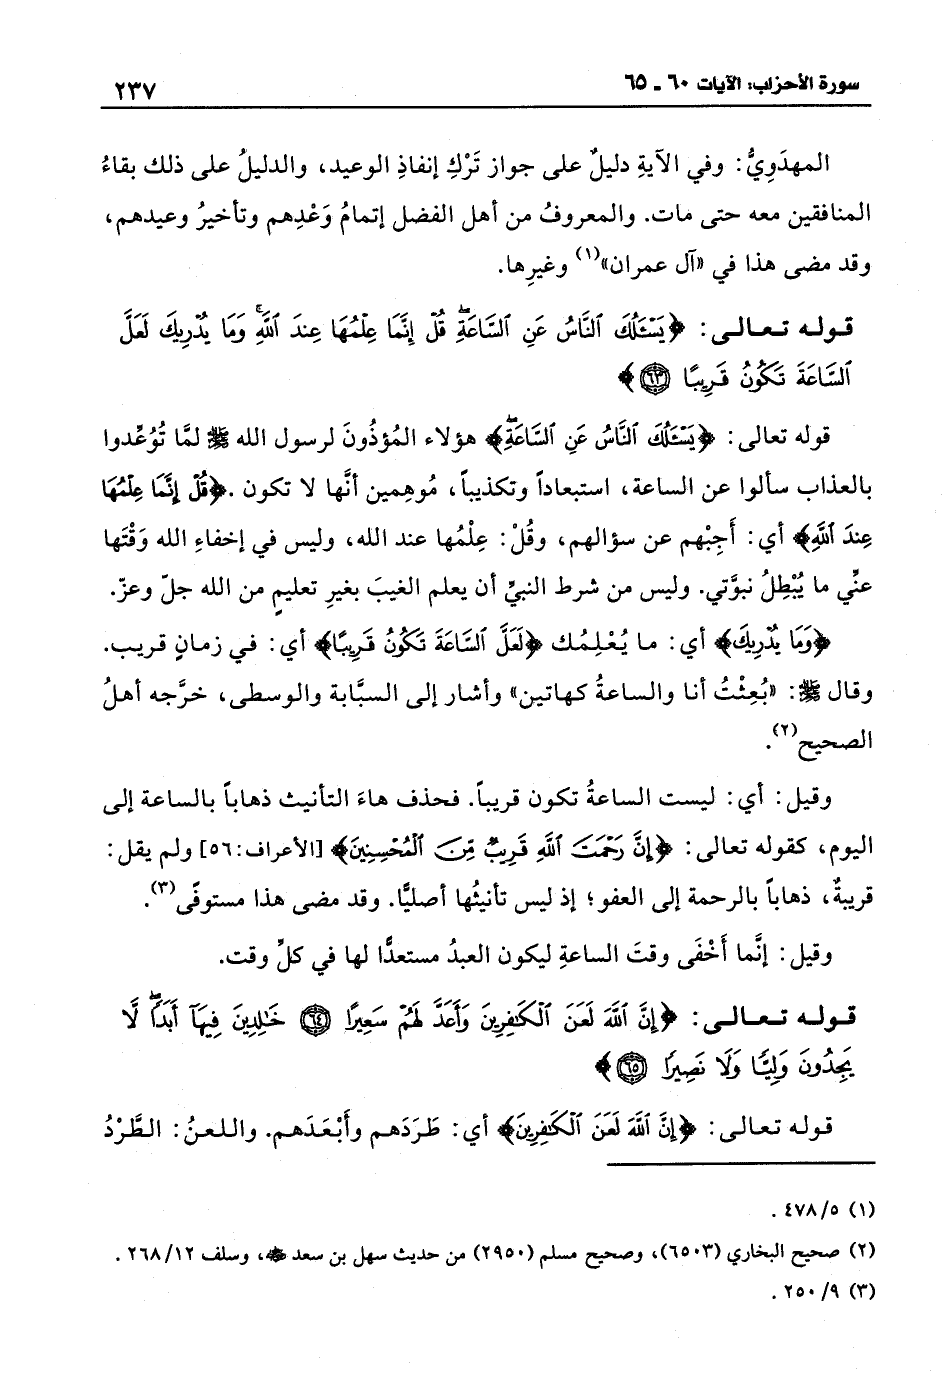 سورة الأحزاب: الآيات ٦٠ ـ ٦٥
٢٣٧
المهدَوِيُّ: وفي الآيةِ دليلٌ على جواز تَرْكِ إنفاذِ الوعيد، والدليلُ على ذلك بقاءُ
المنافقين معه حتى مات. والمعروفُ من أهل الفضل إتمامُ وَعْدِهم وتأخيرُ وعيدهم،
وقد مضى هذا في «آل عمران»(١) وغيرِها.
قوله تعالى: ﴿يَسْـَٔلُكَ ٱلنَّاسُ عَنِ ٱلسَّاعَةِۖ قُلْ إِنَّمَا عِلْمُهَا عِندَ ٱللَّهِۚ وَمَا يُدْرِيكَ لَعَلَّ
ٱلسَّاعَةَ تَكُونُ قَرِيبًا ۝٦٣﴾
قوله تعالى: ﴿يَسْـَٔلُكَ ٱلنَّاسُ عَنِ ٱلسَّاعَةِۖ﴾ هؤلاء المُؤذُونَ لرسول الله ﷺ لمَّا تُوُعِّدوا
بالعذاب سألوا عن الساعة، استبعاداً وتكذيباً، مُوهِمين أنَّها لا تكون. ﴿قُلْ إِنَّمَا عِلْمُهَا
عِندَ ٱللَّهِ﴾ أي: أَجِبْهم عن سؤالهم، وقُلْ: عِلْمُها عند الله، وليس في إخفاءِ الله وَقْتَها
عنِّي ما يُبْطِلُ نبوَّتي. وليس من شرط النبيِّ أن يعلم الغيبَ بغيرِ تعليمٍ من الله جلّ وعزّ.
﴿وَمَا يُدْرِيكَ﴾ أي: ما يُعْلِمُك ﴿لَعَلَّ ٱلسَّاعَةَ تَكُونُ قَرِيبًا﴾ أي: في زمانٍ قريب.
وقال ﷺ: «بُعِثْتُ أنا والساعةُ كهاتين» وأشار إلى السبَّابة والوسطى، خرَّجه أهلُ
الصحيح(٢).
وقيل: أي: ليست الساعةُ تكون قريباً. فحذف هاءَ التأنيث ذهاباً بالساعة إلى
اليوم، كقوله تعالى: ﴿إِنَّ رَحْمَتَ ٱللَّهِ قَرِيبٌ مِّنَ ٱلْمُحْسِنِينَ﴾ [الأعراف: ٥٦] ولم يقل:
قريبةٌ، ذهاباً بالرحمة إلى العفو؛ إذ ليس تأنيثُها أصليًّا. وقد مضى هذا مستوفًى(٣).
وقيل: إنَّما أَخْفَى وقتَ الساعةِ ليكون العبدُ مستعدًّا لها في كلِّ وقت.
قوله تعالى: ﴿إِنَّ ٱللَّهَ لَعَنَ ٱلْكَٰفِرِينَ وَأَعَدَّ لَهُمْ سَعِيرًا ۝٦٤ خَٰلِدِينَ فِيهَآ أَبَدًاۖ لَّا
يَجِدُونَ وَلِيًّا وَلَا نَصِيرًا ۝٦٥﴾
قوله تعالى: ﴿إِنَّ ٱللَّهَ لَعَنَ ٱلْكَٰفِرِينَ﴾ أي: طَرَدَهم وأَبْعَدَهم. واللعنُ: الطَّرْدُ
(١) ٤٧٨/٥ .
(٢) صحيح البخاري (٦٥٠٣)، وصحيح مسلم (٢٩٥٠) من حديث سهل بن سعد ﷺ، وسلف ٢٦٨/١٢ .
(٣) ٢٥٠/٩ .